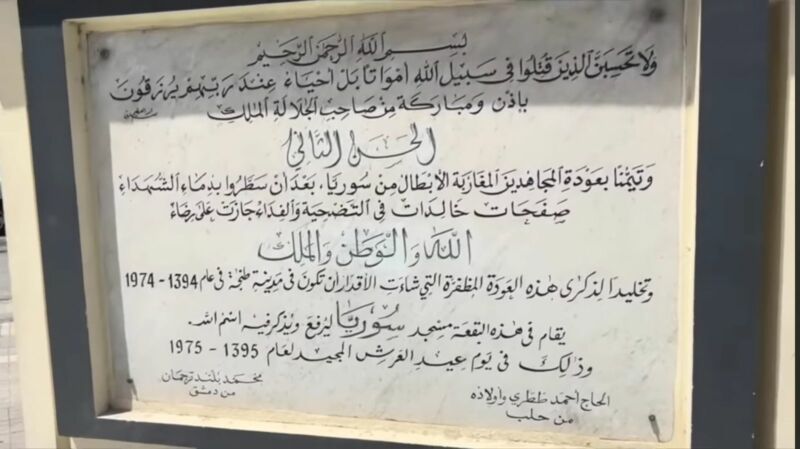 بسم الله الرحمن الرحيم
ولا تحسبن الذين قتلوا في سبيل الله أمواتا بل أحياء عند ربهم يرزقون
بإذن ومباركة من صاحب الجلالة الملك
الحسن الثاني
وتيمنا بعودة المجاهدين المغاربة الأبطال من سوريا، بعد أن سطروا بدماء الشهداء
صفحات خالدات في التضحية والفداء جازت على رضاء
الله والوطن والملك
وتخليدا لذكرى هذه العودة المظفرة التي شاءت الأقدار أن تكون في مدينة طنجة في عام 1394 - 1974
يقام في هذه البقعة مسجد سوريا ليرفع ويذكر فيه اسم الله.
وذلك في يوم عيد العرش المجيد لعام 1395 - 1975
الحاج أحمد ظظري وأولاده
من حلب
محمد بلند ترجمان
من دمشق